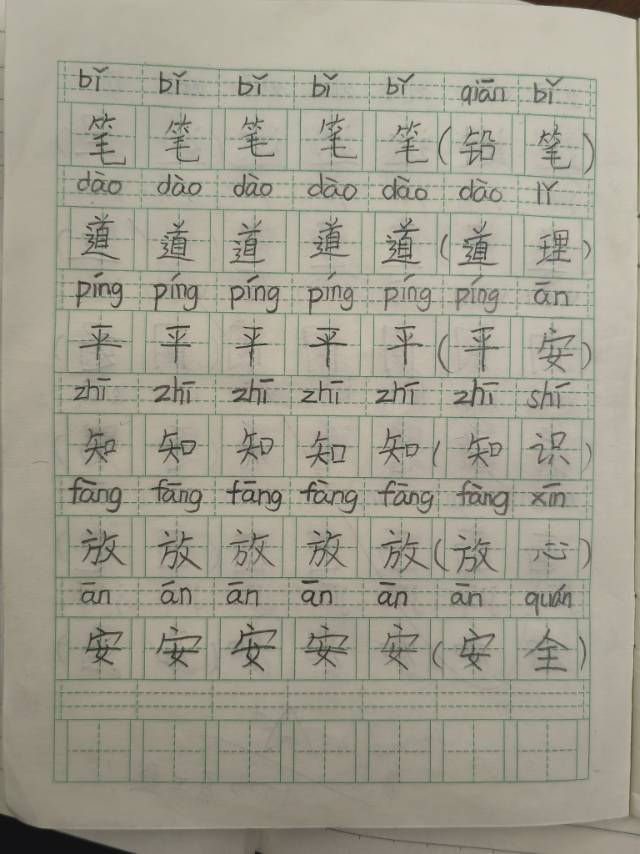 bǐ bǐ bǐ bǐ bǐ qiān bǐ
笔 笔 笔 笔 笔 ( 铅 笔 )
dào dào dào dào dào dào lǐ
道 道 道 道 道 ( 道 理 )
píng píng píng píng píng píng ān
平 平 平 平 平 ( 平 安 )
zhī zhī zhī zhī zhī zhī shí
知 知 知 知 知 ( 知 识 )
fàng fāng fāng fàng fāng fàng xīn
放 放 放 放 放 ( 放 心 )
ān ān ān ān ān ān quán
安 安 安 安 安 ( 安 全 )